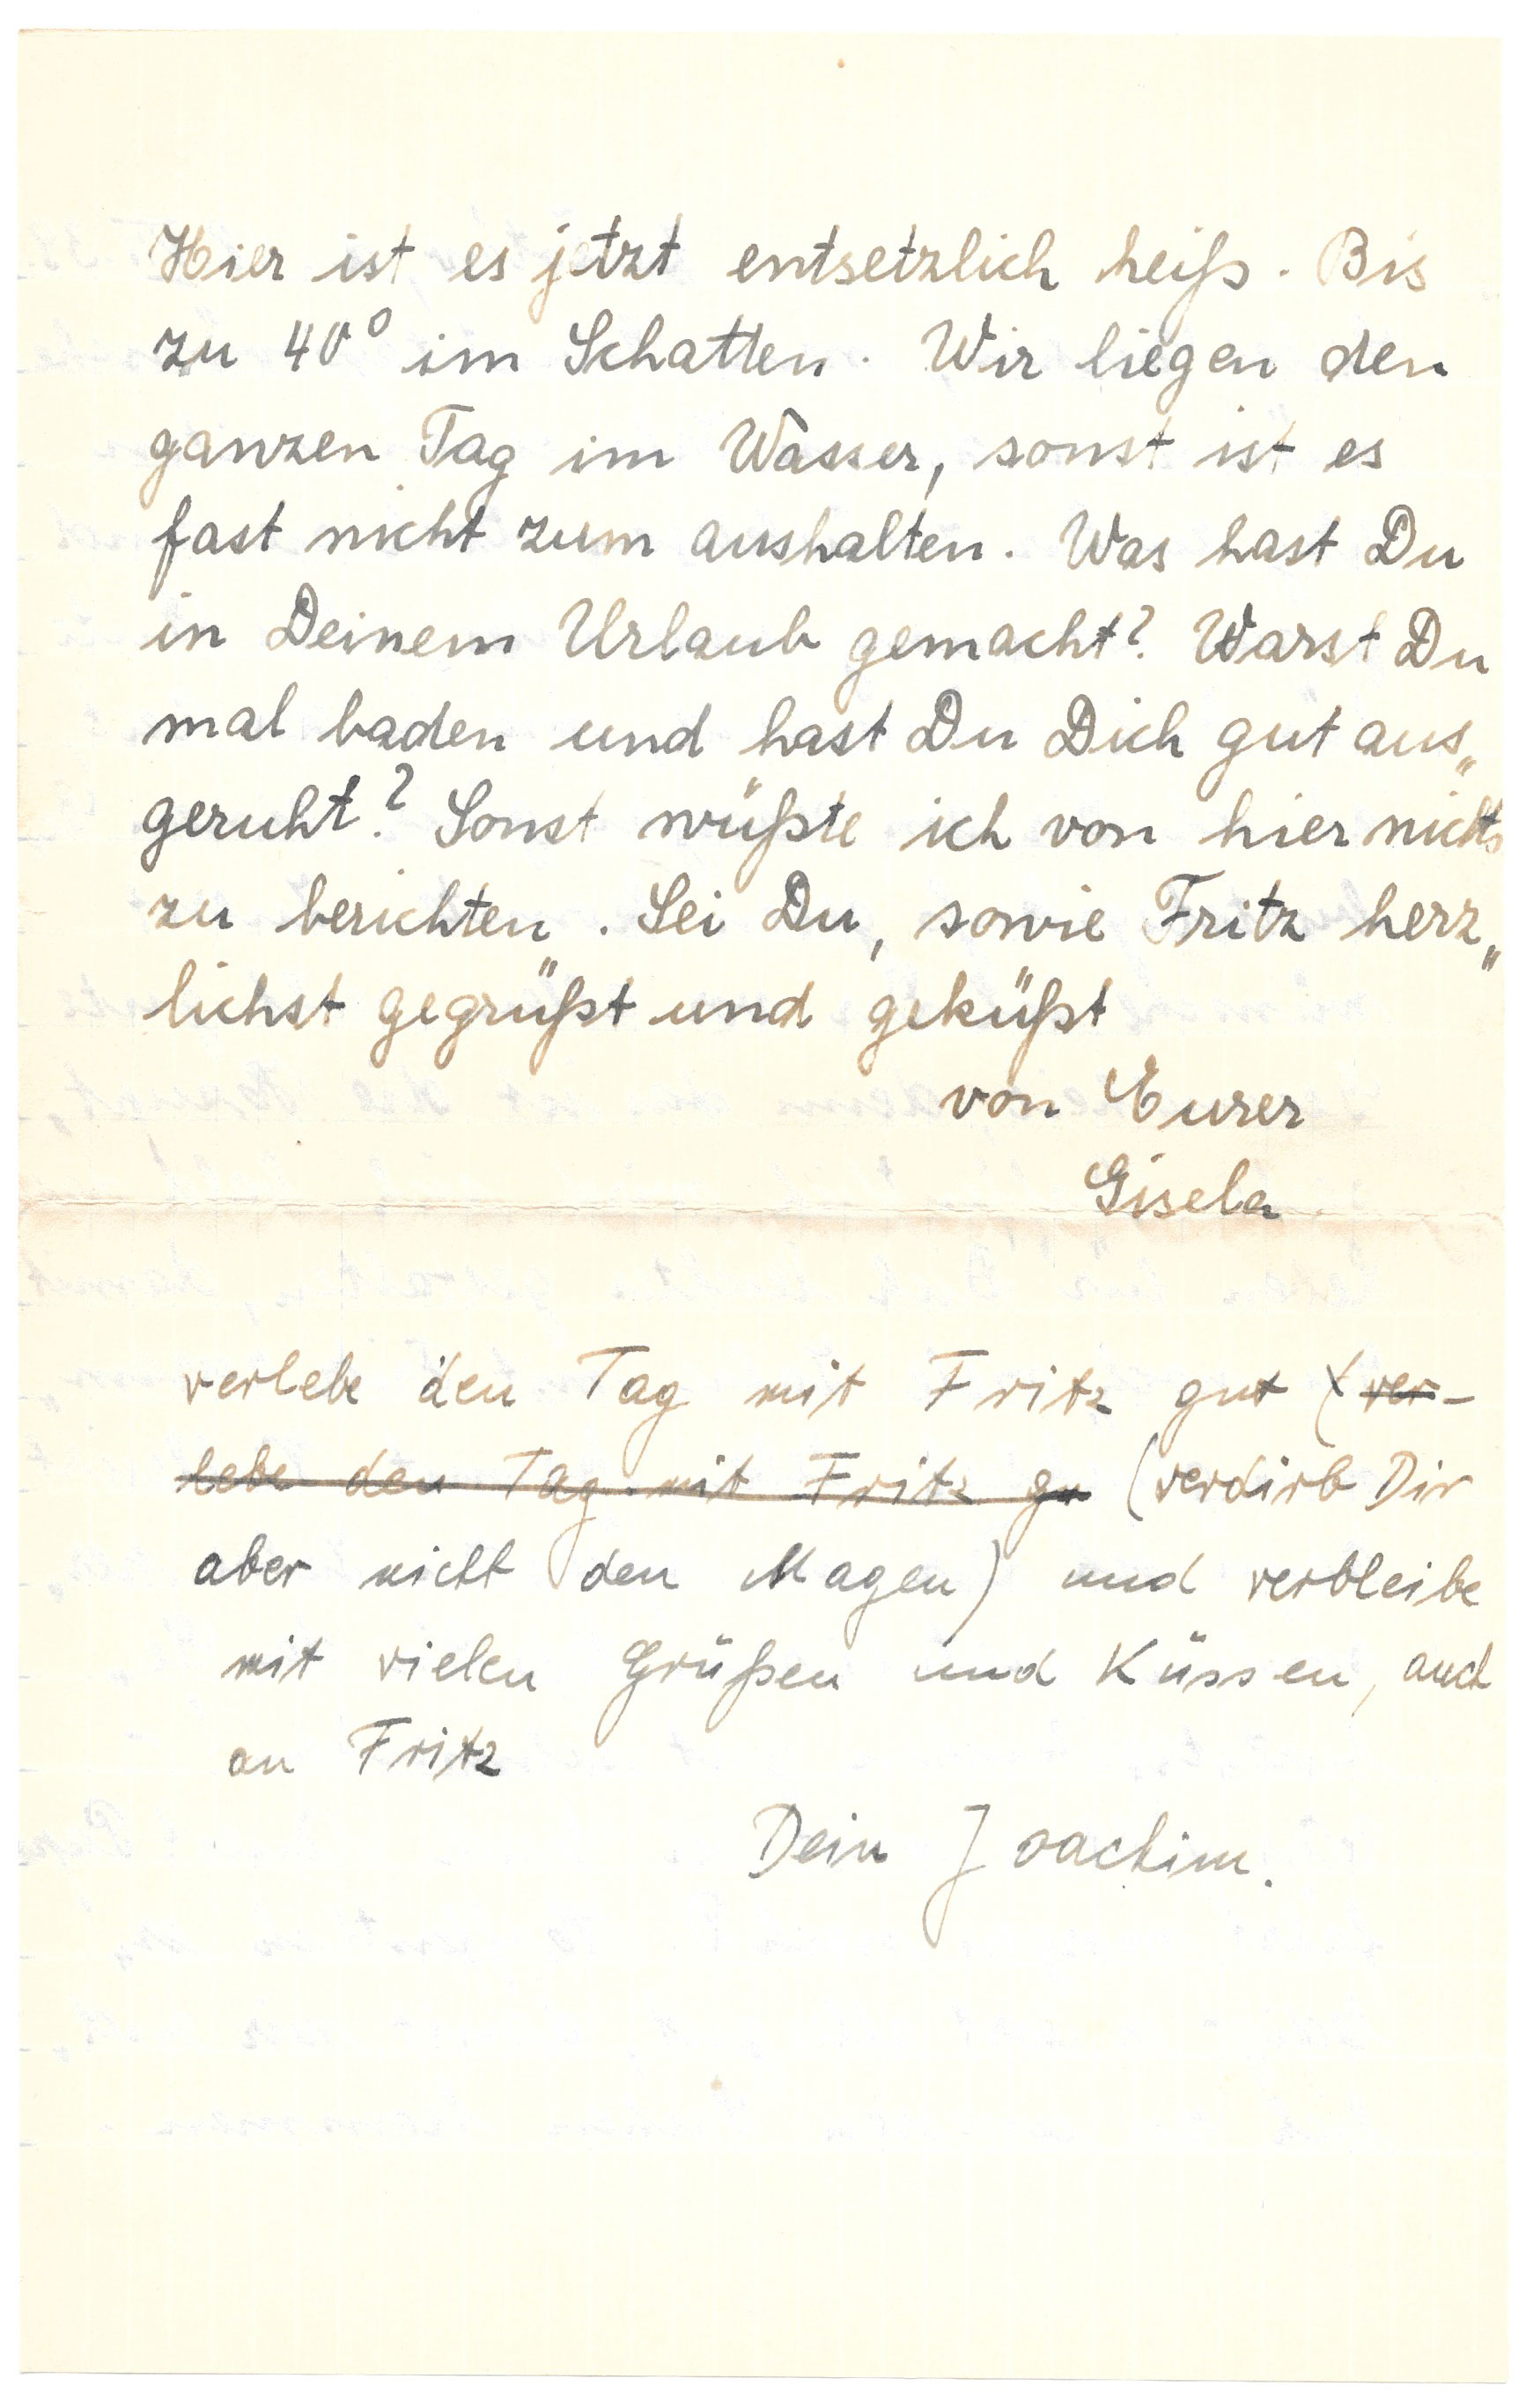 Hier ist es jetzt entsetzlich heiß. Bis
zu 40° im Schatten. Wir liegen den
ganzen Tag im Wasser, sonst ist es
fast nicht zum aushalten. Was hast Du
in Deinem Urlaub gemacht? Warst Du
mal baden und hast Du Dich gut aus„
geruht? Sonst wüßte ich von hier nichts
zu berichten. Sei Du, sowie Fritz herz„
lichst gegrüßt und geküßt
von Eurer
Gisela
verlebe den Tag mit Fritz gut ( ver-
lebe den Tag mit Fritz gu (verdirb Dir
aber nicht den Magen) und verbleibe
mit vielen Grüßen und Küssen, auch
an Fritz
Dein Joachim.